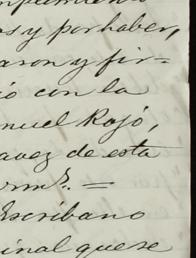 os y por haber,
aron y fir-
ió con la
nuel Rojó,
avez de esta
Escribano
inal que se